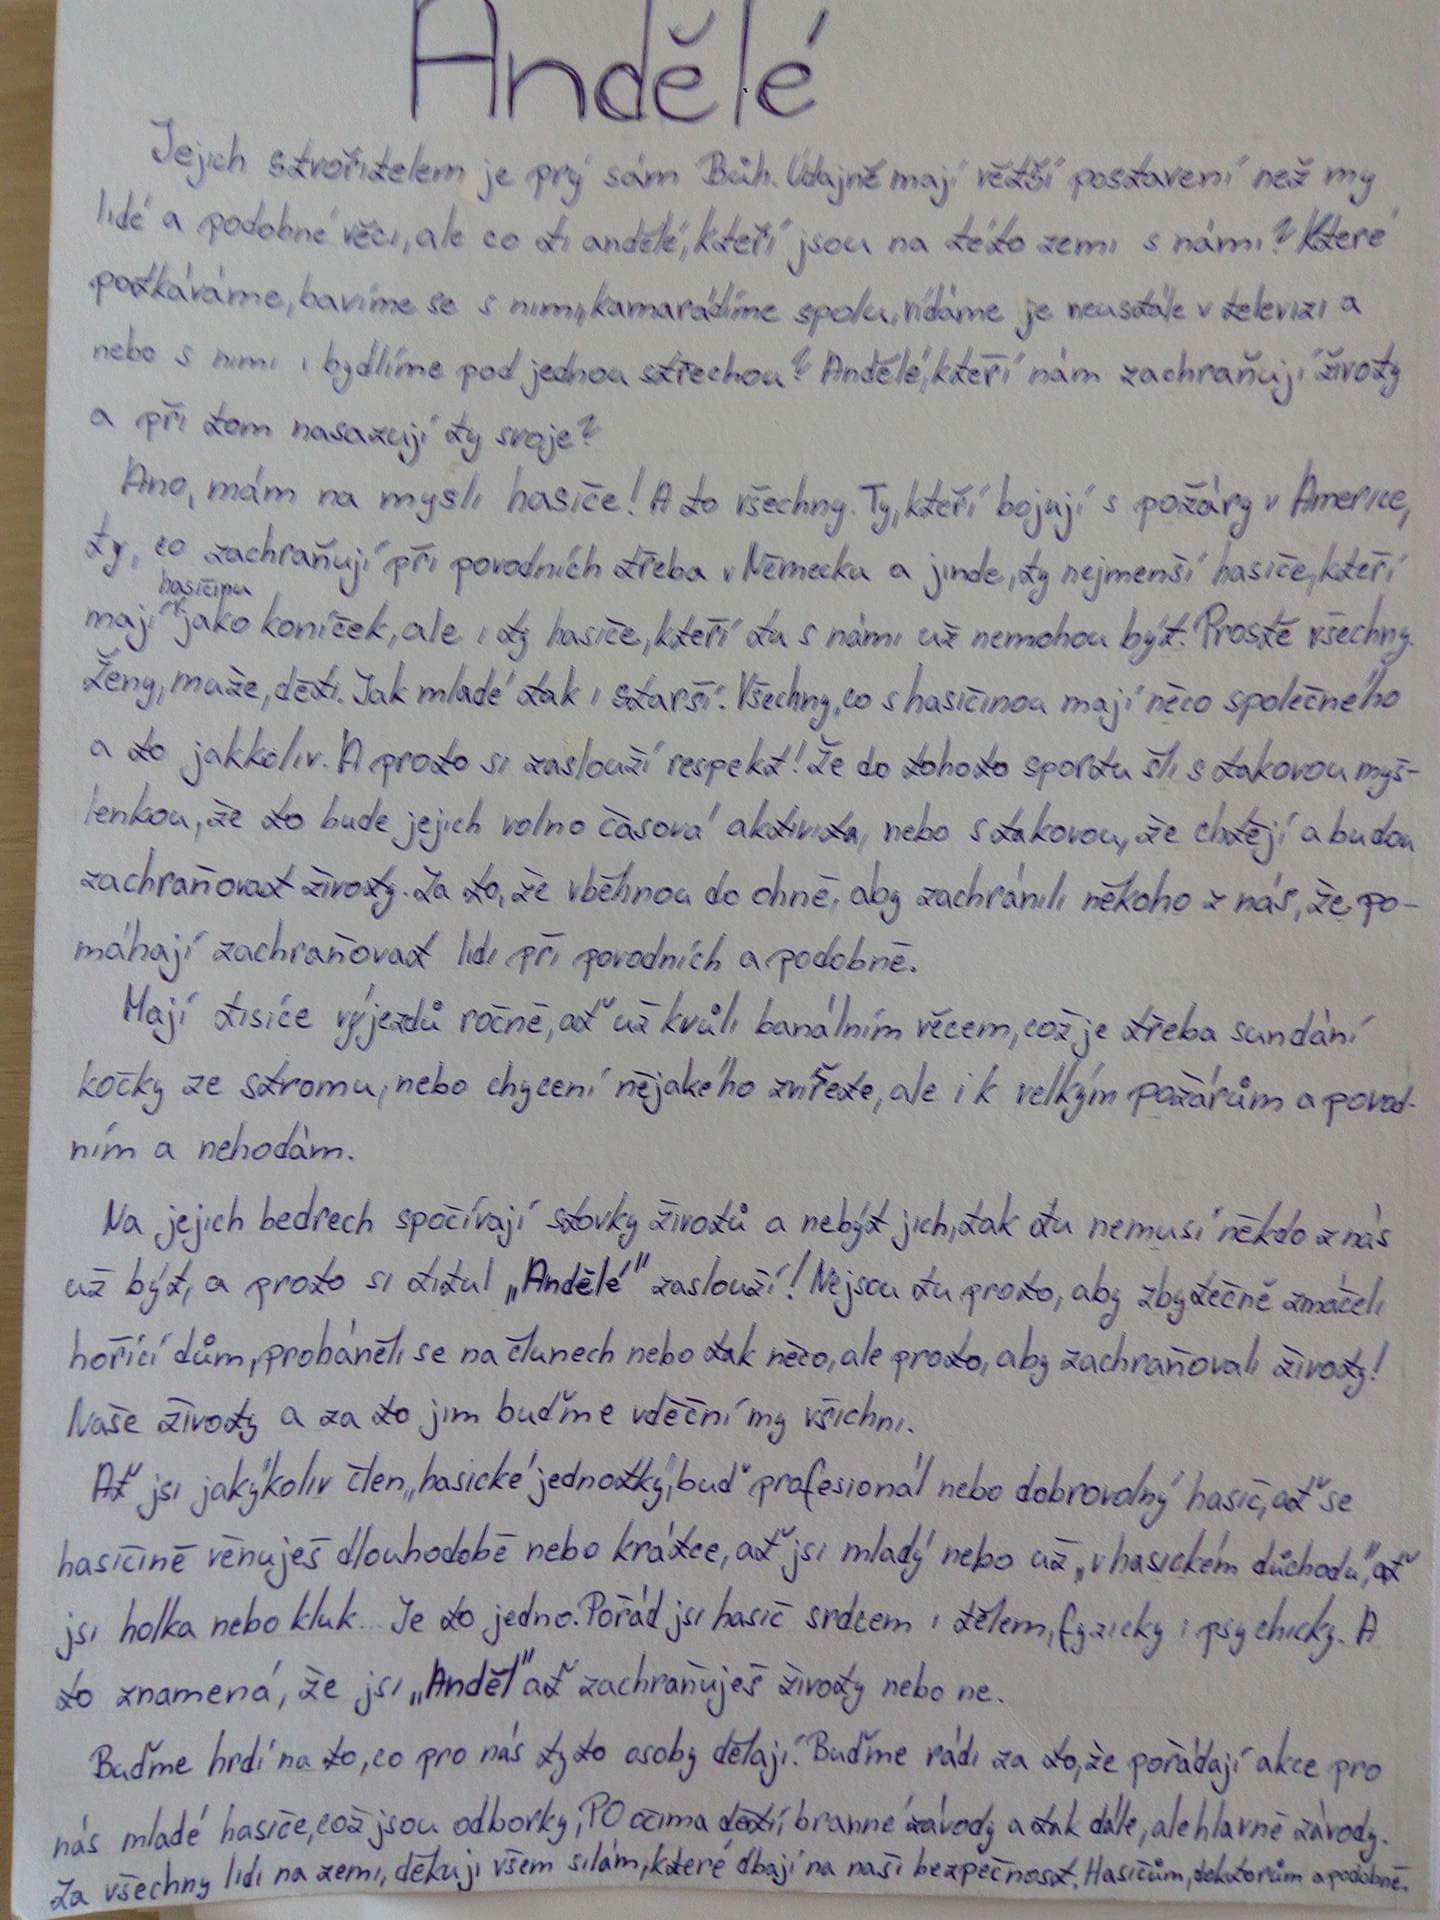 Andělé
Jejich stvořitelem je prý sám Bůh. Údajně mají větší postavení než my
lidé a podobné věci, ale co ti andělé, kteří jsou na této zemi s námi? Které
potkáváme, bavíme se s nimi, kamarádíme spolu, vídáme je neustále v televizi a
nebo s nimi i bydlíme pod jednou střechou? Andělé, kteří nám zachraňují životy
a při tom nasazují ty svoje?
Ano, mám na mysli hasiče! A to všechny. Ty, kteří bojují s požáry v Americe,
ty, co zachraňují při povodních třeba v Německu a jinde, ty nejmenší hasiče, kteří
mají hasičinu jako koníček, ale i ty hasiče, kteří tu s námi už nemohou být. Prostě všechny.
Ženy, muže, děti. Jak mladé tak i starší. Všechny, co s hasičinou mají něco společného
a to jakkoliv. A proto si zaslouží respekt! Že do tohoto sportu šli s takovou myš-
lenkou, že to bude jejich volno časová aktivita, nebo s takovou, že chtějí a budou
zachraňovat životy. Za to, že vběhnou do ohně, aby zachránili někoho z nás, že po-
máhají zachraňovat lidi při povodních a podobně.
Mají tisíce výjezdů ročně, ať už kvůli banálním věcem, což je třeba sundání
kočky ze stromu, nebo chycení nějakého zvířete, ale i k velkým požárům a povod-
ním a nehodám.
Na jejich bedrech spočívají stovky životů a nebýt jich, tak tu nemusí někdo z nás
už být, a proto si titul „Andělé" zaslouží! Nejsou tu proto, aby zbytečně zmáčeli
hořící dům, proháněli se na člunech nebo tak něco, ale proto, aby zachraňovali životy!
Naše životy a za to jim buďme vděční my všichni.
Ať jsi jakýkoliv člen „hasické jednotky", buď profesionál nebo dobrovolný hasič, ať se
hasičině věnuješ dlouhodobě nebo krátce, ať jsi mladý nebo už „v hasickém důchodu", ať
jsi holka nebo kluk... Je to jedno. Pořád jsi hasič srdcem i tělem, fyzicky i psychicky. A
to znamená, že jsi „Anděl" ať zachraňuješ životy nebo ne.
Buďme hrdí na to, co pro nás tyto osoby dělají. Buďme rádi za to, že pořádají akce pro
nás mladé hasiče, což jsou odborky, PO očima dětí, branné závody a tak dále, ale hlavně závody.
Za všechny lidi na zemi, děkuji všem silám, které dbají na naši bezpečnost. Hasičům, doktorům a podobně.